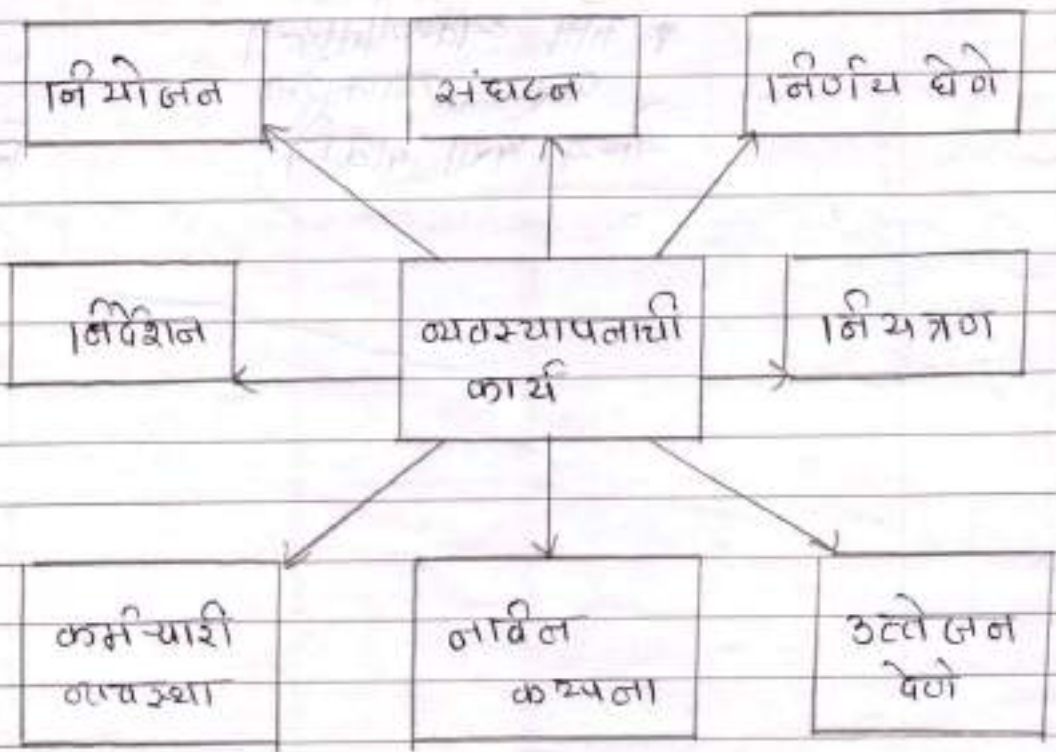 नियोजन
संघटन
निर्णय घेणे
निर्देशन
व्यवस्थापनाची
कार्य
नियत्रण
कर्मचारी
व्यवस्था
नाविन
कल्पना
उत्तेजन
देणे